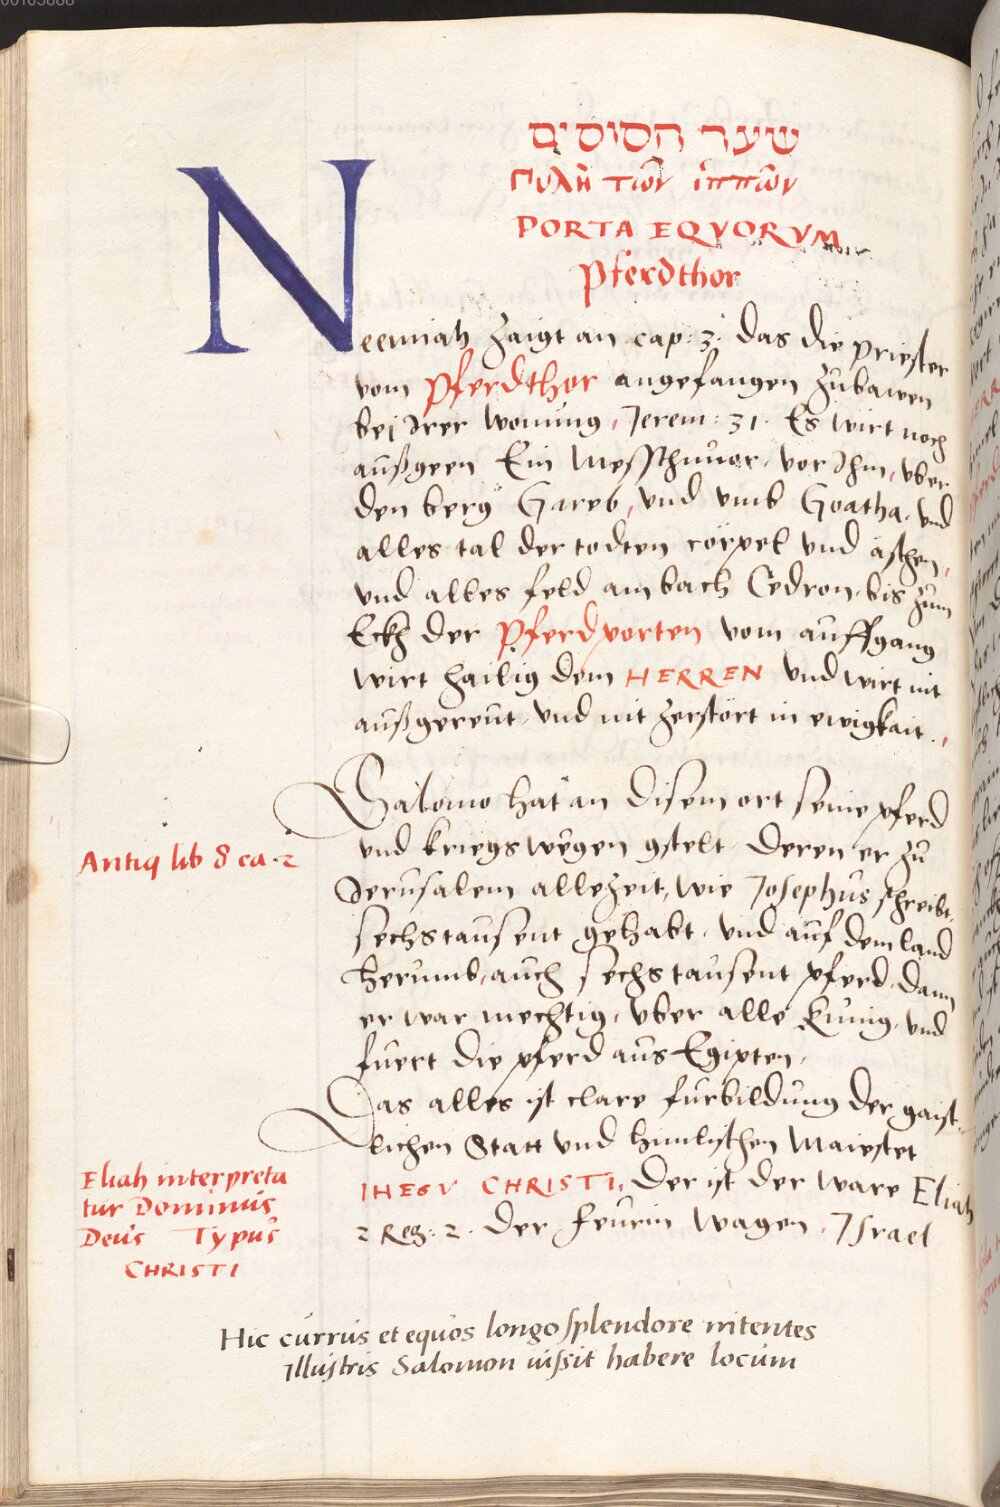 שער הסוסים
πυλὴ τῶν ἱππῶν
PORTA EQVORVM
Pferdthor
Neemiah zaigt an cap: 3. das die priester
vom Pferdthor angefangen zůbawen
bei Irer wonung, Jerem: 31. Es wirt noch
außgeen Ein Messschnuor, vor Ihm, vber
den berg Gareb, vnd vmb Goatha. vnd
alles tal der todten cörpel vnd äschen,
vnd alles feld am bach Cedron, bis zum
Eckh der Pferdporten vom auffgang
wirt hailig dem HERREN vnd wirt nit
außgereut, vnd nit zerstört in ewigkait.
Salomo hat an disem ort seine pferd
vnd kriegs wëgen gstelt. Deren er zů
Jerusalem allezeit, wie Josephus schreibt,
sechstausent gehabt, vnd auf dem land
herumb, auch sechstausent pferd, Dann
er war mechtig, vber alle Künig, vnd
fuert die pferd aus Egipten,
Das alles ist clare furbildung der gaist-
lichen Statt vnd himlischen Maiestet
IHESV CHRISTI, Der ist der ware Eliah
2 Reg: 2. Der feurin wagen, Israel
Antiq lib 8 ca. 2
Eliah interpreta
tur Dominus
Deus Typus
CHRISTI
Hic currus et equos longo splendore nitentes
Illustris Salomon iussit habere locum